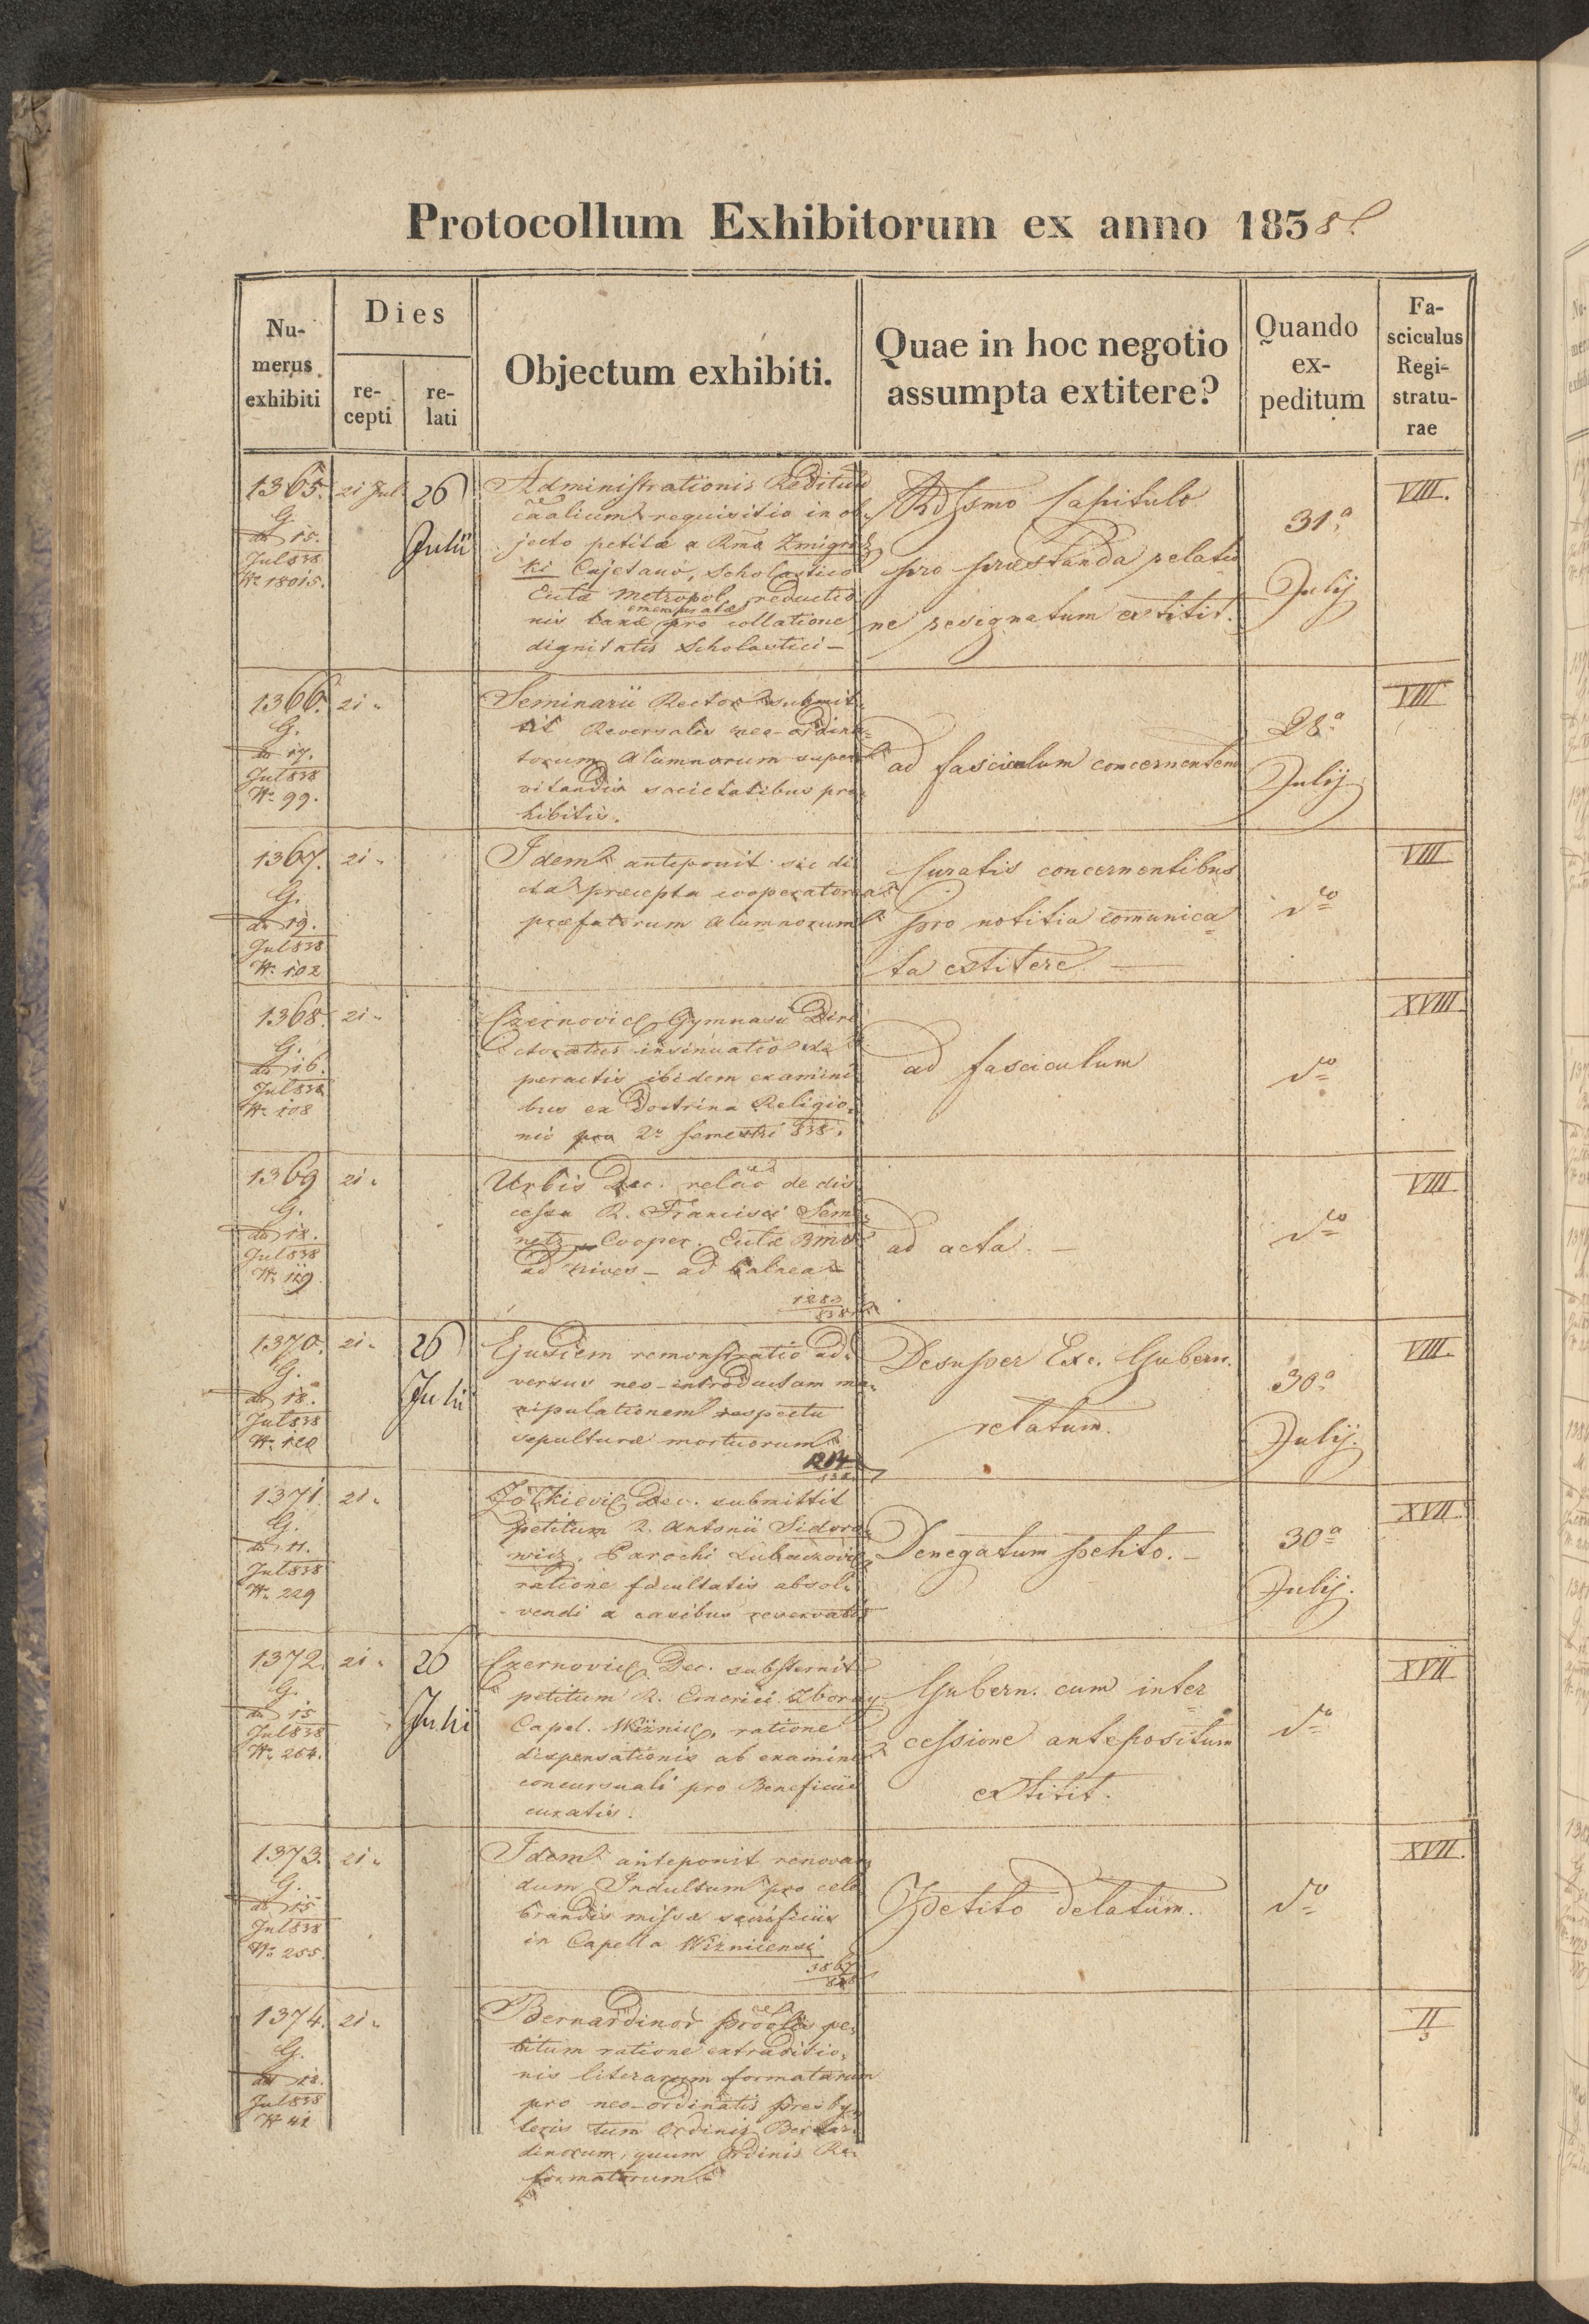 Protocollum Exhibitorum ex anno 1838.
Nu-
merus
exhibiti
Dies
re-
cepti
re-
lati
Objectum exhibiti.
Quae in hoc negotio
assumpta extitere?
Quando
ex-
peditum
Fa-
sciculus
Regi-
stratu-
rae
1365.
G.
15.
Jul 838
N: 18015.
21 Jul
26
Julii
Administrationis Redituu
requisitio in ob-
jecto petitæ a Rmo Zmigrod
ki Cajetano, Scholastico
Metropol. reductio
emensuratæ
nis taxæ pro collatione
dignitatis Scholastici –
Capitulo
pro præstanda relatio
ne resignatum extitit.
31a
Julij
VIII.
1366.
G.
17.
Jul 838
N: 99.
21 "
Seminarii Rector submit
tit Reversales neo-ordina-
torum Alumnorum super
vitandis societatibus pro
hibitis.
ad fasciculum concernentem
28a
Julij
VIII
1367.
G.
19.
Jul 838
N: 102
21 "
Idem anteponit sic di
cta præcepta cooperatorea
præfatorum Alumnorum
Curatis concernentibus
pro notitia comunica
ta extitere –
do
VIII
1368.
G.
16.
Jul 838
N: 108
21 "
Czernovic. Gymnasii Dire
ctoratus insinuatio de
peractis ibidem examini
bus ex Doctrina Religio-
nis pro 2o semestri 838.
ad fasciculum
do
XVIII
1369
G.
18.
Jul 838
N: 119
21 "
Urbis Dec. relao de dis
cessu R. Francisci
Cooper.
ad Nives – ad balnea
1283
838
ad acta. –
do
VIII
1370.
G.
18.
Jul 838
N: 120
21 "
26
Julii
Ejusdem remonstratio ad-
versus neo-introductam ma-
nipulationem respectu
sepulturæ mortuorum
Desuper Exc. Gubern.
relatum.
30a
Julij.
VIII.
1371.
G.
11.
Jul 838
N: 229
21 "
Zołkievic. Dec. submittit
petitum R. Antonii Sidoro
wicz, Parochi Lubaczovic.
ratione facultatis absol-
vendi a casibus reservatis
Denegatum petito. –
30a
Julij.
XVII
1372.
G.
15
Jul 838
N: 254.
21 "
26
Julii
Czernovic. Dec. substernit
petitum R. Emerici Zboray
Capel. Wiżnic. ratione
dispensationis ab examine
concursuali pro Beneficiis
curatis.
Gubern. cum inter
cessione antepositum
extitit.
do
XVII
1373.
G.
15
Jul 838
N: 255.
21 "
Idem anteponit renovan
dum Indultum pro cele
brandis missæ sacrificiis
in Capella Wizniiensi
Petito delatum.
do
XVII.
1374.
G.
12.
Jul 838
N 41
21 "
Bernardinor pe-
titum ratione extraditio-
nis literarum formatarum
pro neo-ordinatis Presby-
teris tum Ordinis Bernar-
dinorum, quum Ordinis Re-
formatorum
II
3